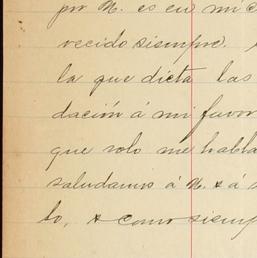 por N. es en mi c
vecido siempre.
la que dicta las
dación á mi favor
que solo me habla
saludamos á N. & á s
lo, & como siemp